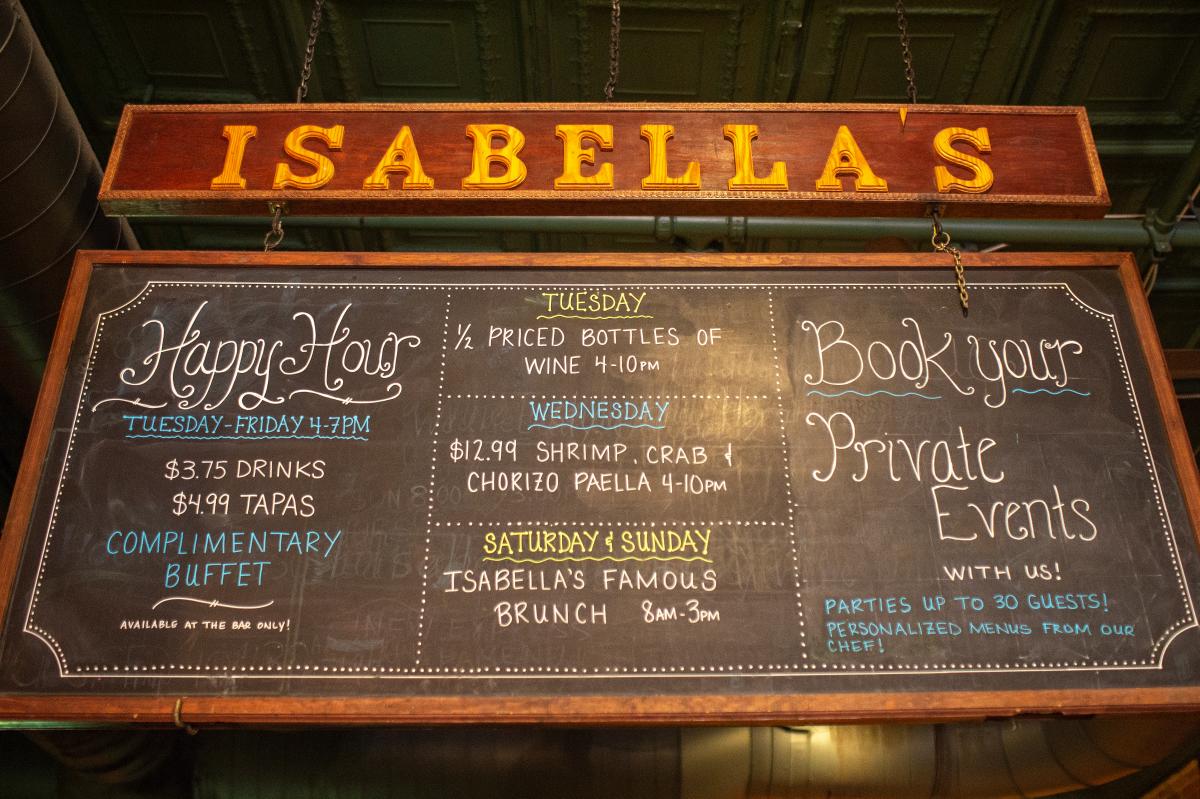 ISABELLA'S
Happy Hour
TUESDAY-FRIDAY 4-7PM
$3.75 DRINKS
$4.99 TAPAS
COMPLIMENTARY
BUFFET
AVAILABLE AT THE BAR ONLY!
TUESDAY
½ PRICED BOTTLES OF
WINE 4-10PM
WEDNESDAY
$12.99 SHRIMP, CRAB &
CHORIZO PAELLA 4-10PM
SATURDAY & SUNDAY
ISABELLA'S FAMOUS
BRUNCH 8AM-3PM
Book your
Private
Events
WITH US!
PARTIES UP TO 30 GUESTS!
PERSONALIZED MENUS FROM OUR
CHEF!